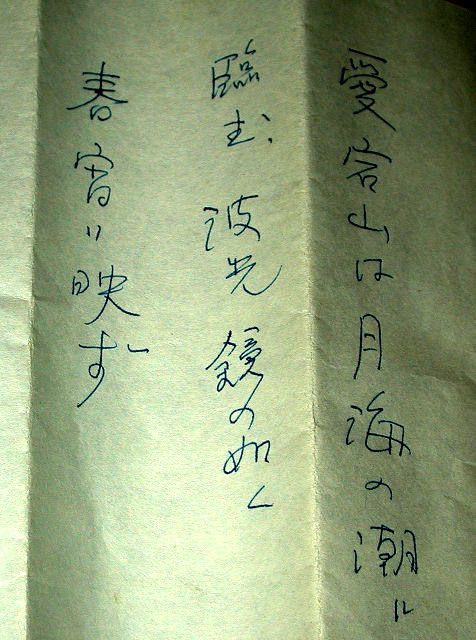 愛宕山は月海の潮に
臨む 波光 鏡の如く
春宵に映ず